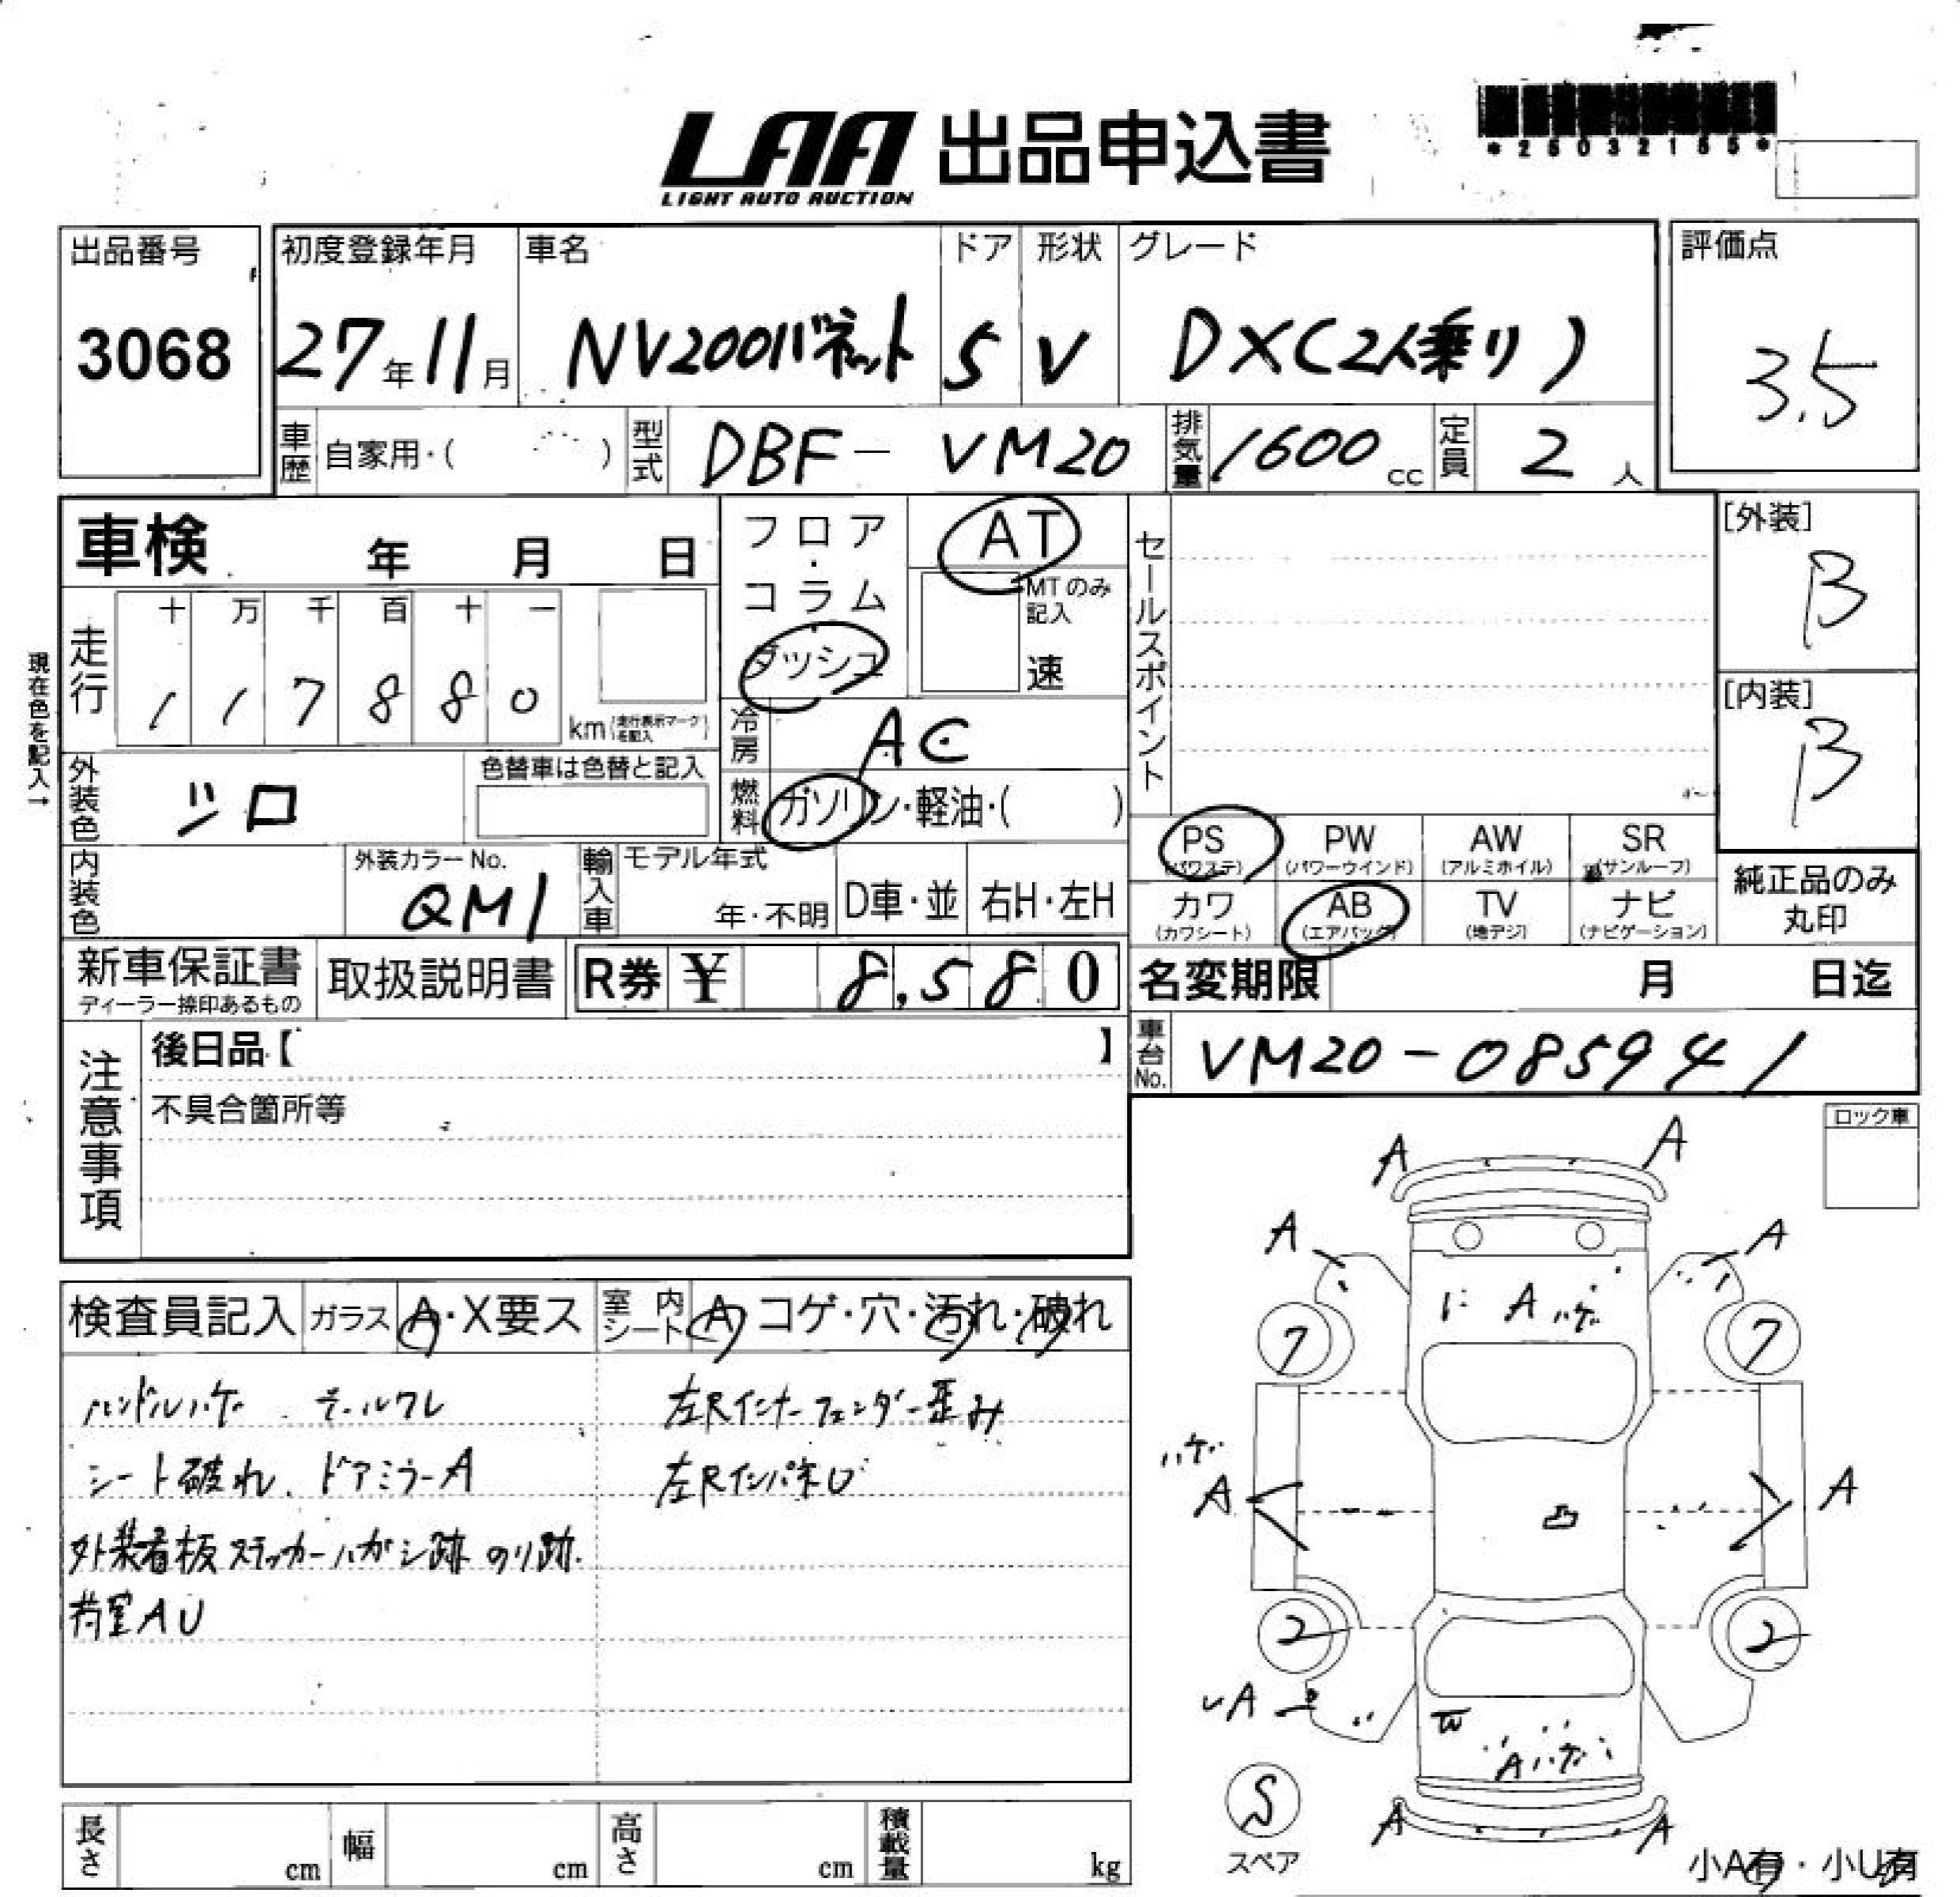 LAA 出品申込書
LIGHT AUTO AUCTION
*25032155*
出品番号
3068
初度登録年月
27年11月
車名
NV200バネット
ドア
5
形状
V
グレード
DX(2人乗り)
評価点
3.5
車歴 自家用・( )
型式 DBF- VM20
排気量 1600 cc
定員 2 人
車検 年 月 日
走行
十 万 千 百 十 一
1 1 7 8 8 0
km(走行表示マークを記入)
現在色を記入→
フロア・コラム・ダッシュ
AT
MTのみ記入
速
冷房 AC
燃料 ガソリン・軽油・( )
外装色 シロ
色替車は色替と記入
内装色
外装カラーNo.
QM1
輸入車 モデル年式
年・不明
D車・並
右H・左H
セールスポイント
[外装]
B
[内装]
B
PS (パワステ)
PW (パワーウインド)
AW (アルミホイル)
SR (サンルーフ)
カワ (カワシート)
AB (エアバッグ)
TV (地デジ)
ナビ (ナビゲーション)
純正品のみ丸印
新車保証書
ディーラー捺印あるもの
取扱説明書
R券 ¥ 8,580
名変期限 月 日迄
車台No. VM20-085941
注意事項
後日品【 】
不具合箇所等
ロック車
検査員記入
ガラス A・X要ス
室内シート A コゲ・穴・汚れ・破れ
ハンドルハゲ モールワレ
シート破れ、ドアミラーA
外装看板ステッカーハガシ跡 のり跡.
荷室AU
左Rインナーフェンダー歪み
左RインパネU
A A
A A
A ハゲ
7 7
ハゲ
A A
凸
2 2
A
W
Aハゲ
S
スペア
A A
小A有・小U有
長さ cm
幅 cm
高さ cm
積載量 kg